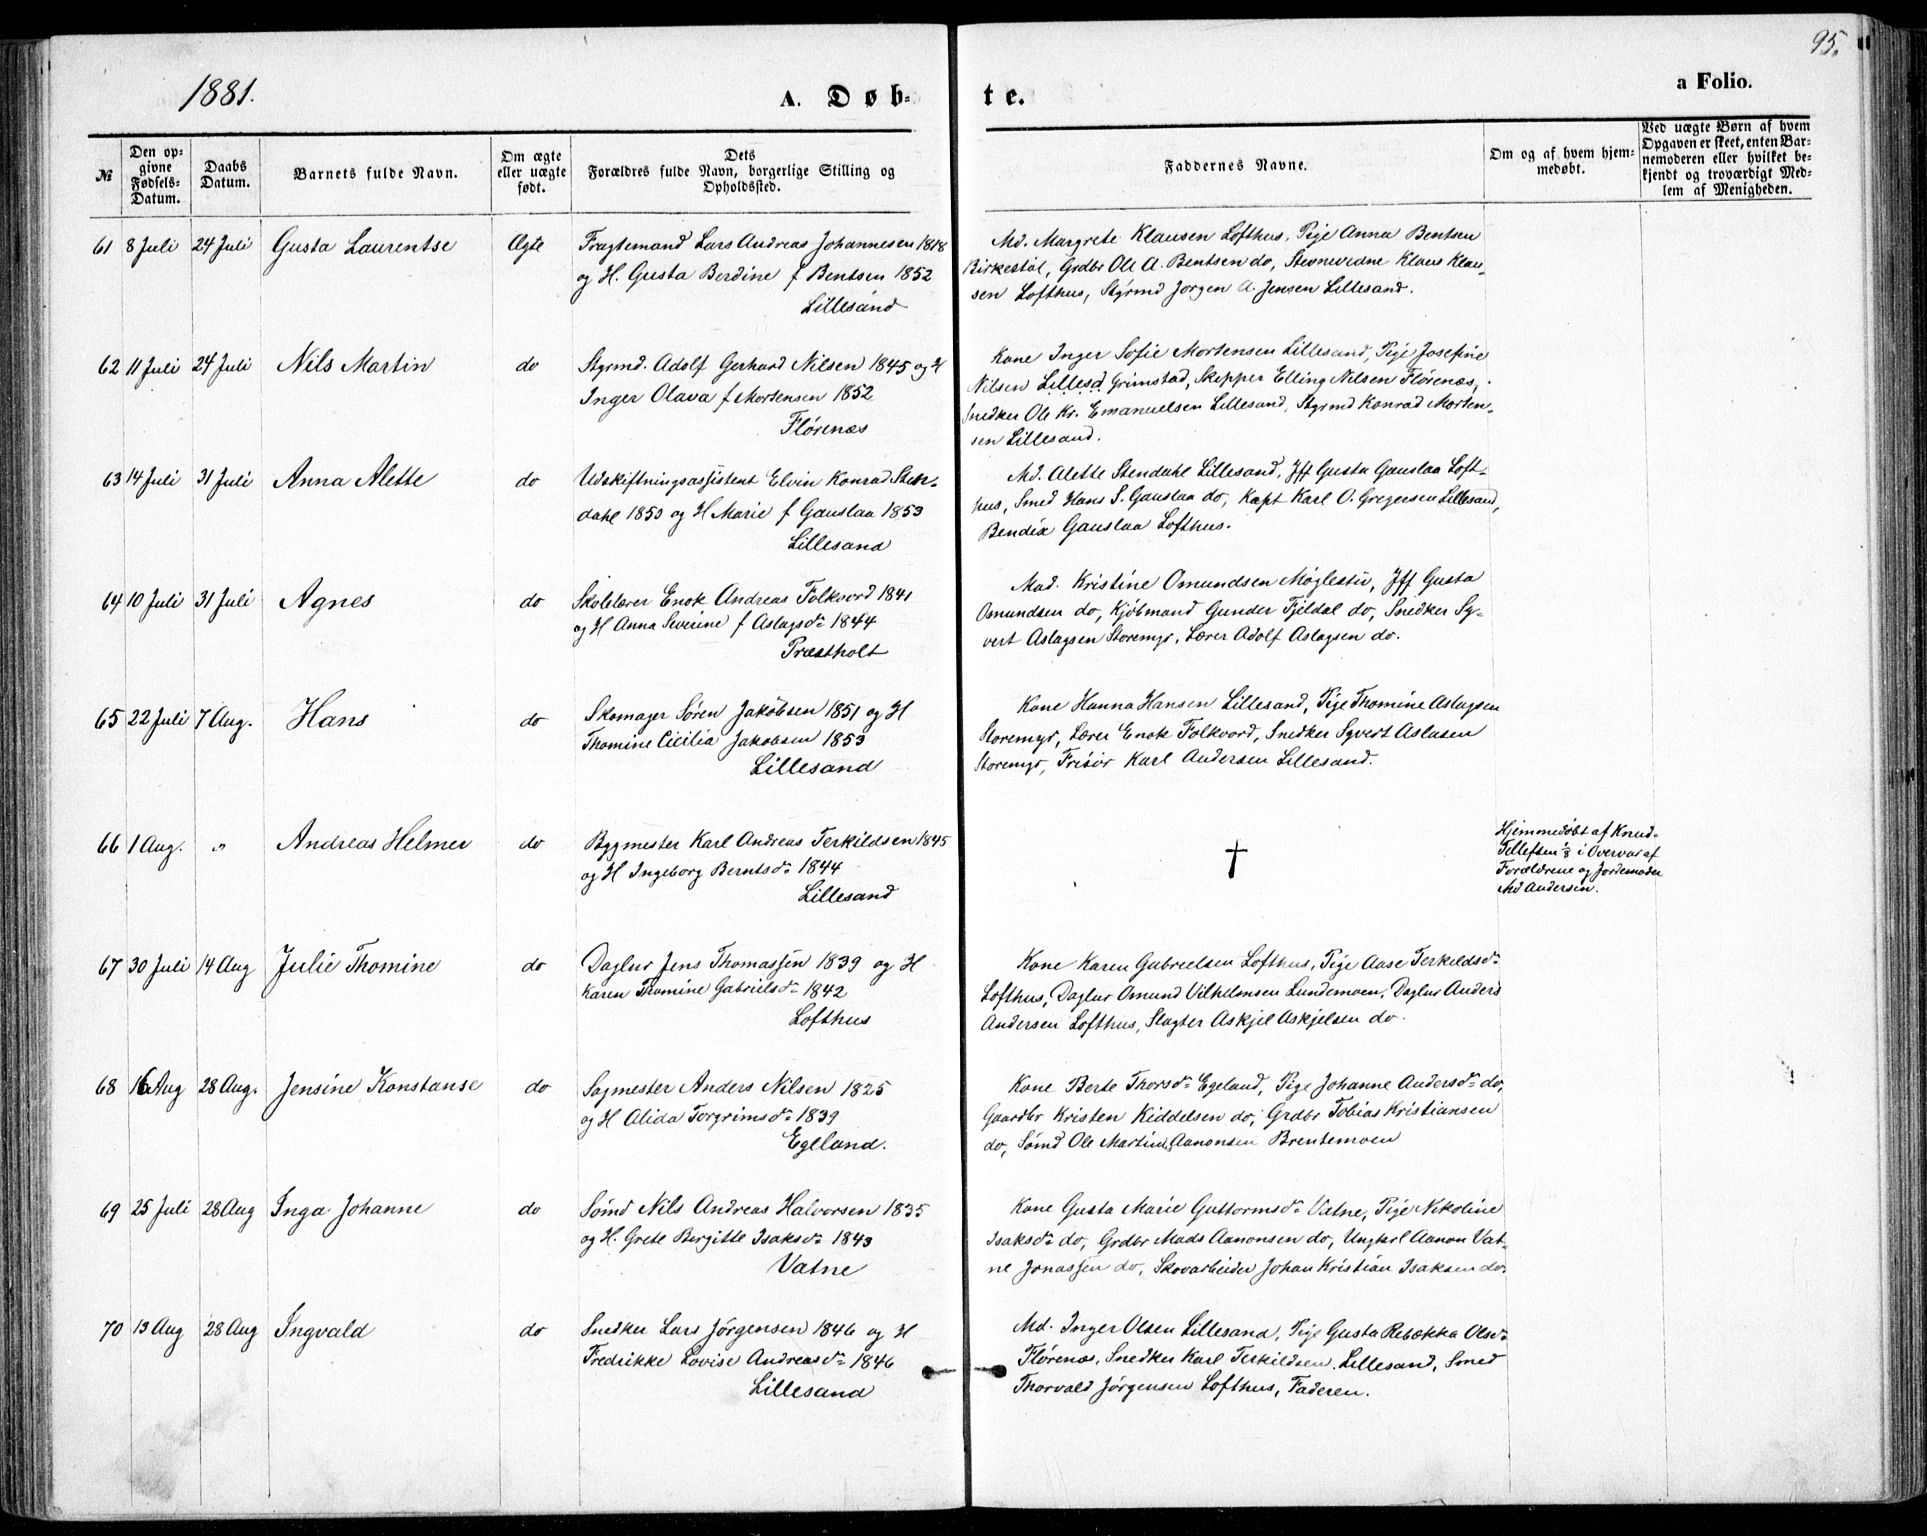 95.
1881.
A. Døb-
te.
a Folio.
№
Den op-
givne
Fødsels-
Datum.
Daabs
Datum.
Barnets fulde Navn.
Om ægte
eller uægte
født.
Dets
Forældres fulde Navn, borgerlige Stilling og
Opholdssted.
Faddernes Navne.
Om og af hvem hjem-
medøbt.
Ved uægte Børn af hvem
Opgaven er skeet, enten Bar-
nemoderen eller hvilket be-
kjendt og troværdigt Med-
lem af Menigheden.
61 8 Juli 24 Juli Gusta Laurentse Ægte Fragtemand Lars Andreas Johannesen 1818
og H. Gusta Berdine f Bentsen 1852
Lillesand
Md. Margrete Klausen Lofthus, Pige Anna Bentsen
Birkestøl, Grdbr Ole A. Bentsen do, Stevnevidne Klaus Klau-
sen Lofthus, Styrmd Jørgen A. Jensen Lillesand.
62 11 Juli 24 Juli Nils Martin do Styrmd. Adolf Gerhard Nilsen 1845 og H
Inger Olava f Mortensen 1852
Flørenæs
Kone Inger Sofie Mortensen Lillesand, Pige Josefine
Nilsen Lillesd Grimstad, Skipper Elling Nilsen Flørenæs,
Snedker Ole Kr. Emanuelsen Lillesand, Styrmd Konrad Morten-
sen Lillesand.
63 14 Juli 31 Juli Anna Alette do Udskiftningsassistent Elvin Konrad Sten-
dahl 1850 og H Marie f Gauslaa 1853
Lillesand
Md. Alette Stendahl Lillesand, Jff Gusta Gauslaa Loft-
hus, Smed Hans S. Gauslaa do, Kapt Karl O. Gregersen Lillesand,
Bendix Gauslaa Lofthus.
64 10 Juli 31 Juli Agnes do Skolelærer Enok Andreas Folkvord 1841
og H Anna Severine f Aslagsdr 1844
Præstholt
Mad. Kristine Omundsen Møglestu, Jff Gusta
Omundsen do, Kjøbmand Gunder Fjeldal do, Snedker Sy-
vert Aslagsen Storemyr, Lærer Adolf Aslagsen do.
65 22 Juli 7 Aug. Hans do Skomager Søren Jakobsen 1851 og H
Thomine Cicilia Jakobsen 1853
Lillesand
Kone Hanna Hansen Lillesand, Pige Thomine Aslagsen
Storemyr, Lærer Enok Folkvord, Snedker Syvert Aslasen
Storemyr, Frisør Karl Andersen Lillesand.
66 1 Aug. " Andreas Helmer do Bygmester Karl Andreas Terkildsen 1845
og H Ingeborg Berntsdr 1844
Lillesand
†
Hjemmedøbt af Knud
Tellefsen 1/8 i Overvær af
Forældrene og Jordemoder
Md Andersen.
67 30 Juli 14 Aug Julie Thomine do Daglør Jens Thomassen 1839 og H
Karen Thomine Gabrielsdr 1842
Lofthus
Kone Karen Gabrielsen Lofthus, Pige Aase Terkildsdr
Lofthus, Daglør Omund Vilhelmsen Lundemoen, Daglør Anders
Andersen Lofthus, Slagter Askjel Askjelsen do.
68 16 Aug 28 Aug. Jensine Konstanse do Sagmester Anders Nilsen 1825
og H Alida Torgrimsdr 1839
Egeland.
Kone Berte Thorsdr Egeland, Pige Johanne Andersdr do,
Gaardbr Kristen Kiddelsen do, Grdbr Tobias Kristiansen
do, Sømd Ole Martin Aanonsen Brentemoen
69 25 Juli 28 Aug Inga Johanne do Sømd Nils Andreas Halvorsen 1835
og H. Grete Birgitte Isaksdr 1843
Vatne
Kone Gusta Marie Guttormsdr Vatne, Pige Nikoline
Isaksdr do, Grdbr Mads Aanonsen do, Ungkarl Aanon Vat-
ne Jonassen do, Skovarbeider Johan Kristian Isaksen do.
70 13 Aug 28 Aug Ingvald do Snedker Lars Jørgensen 1846 og H
Fredrikke Lovise Andreasdr 1846
Lillesand
Md. Inger Olsen Lillesand, Pige Gusta Rebækka Olsdr
Flørenæs, Snedker Karl Terkildsen Lillesand, Smed
Thorvald Jørgensen Lofthus, Faderen.